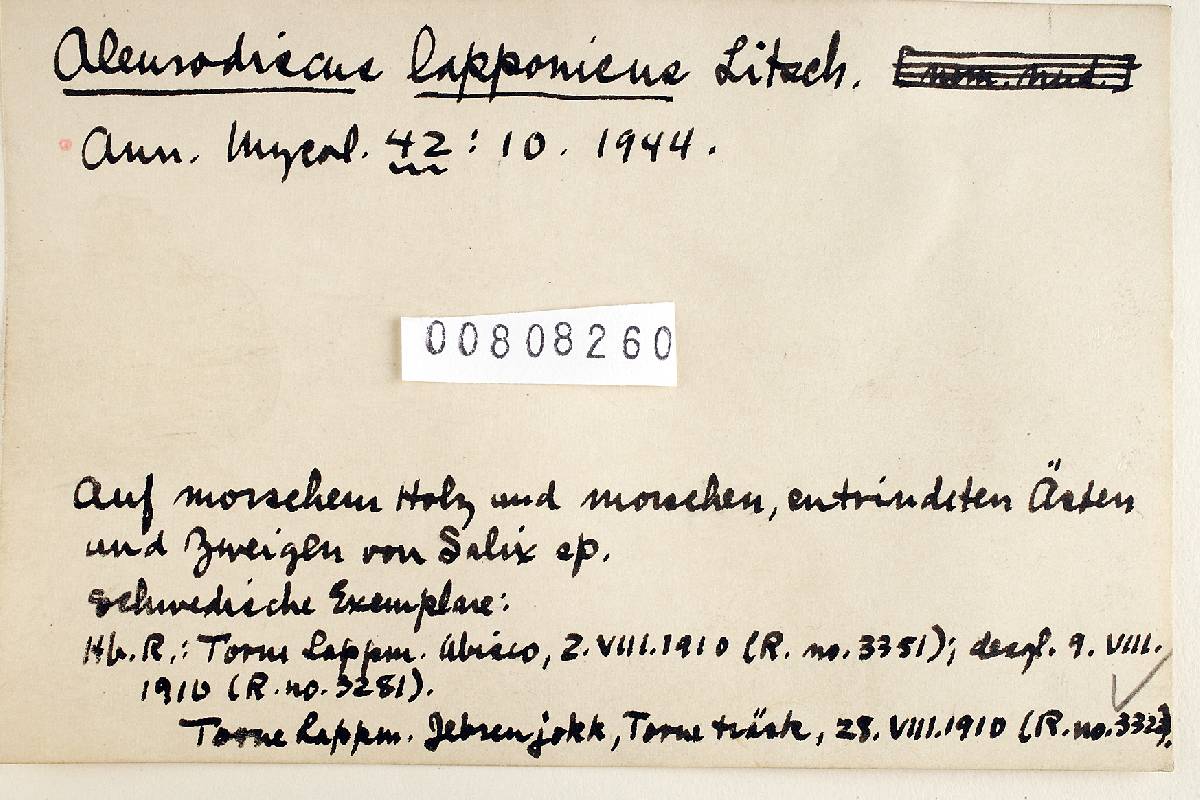 Aleurodiscus lapponicus Litsch. [nom. nud.]
Ann. Mycol. 42 : 10. 1944.
00808260
Auf morschem Holz und morschen, entrindeten Ästen
und Zweigen von Salix sp.
Schwedische Exemplare:
Hb. R.: Torne Lappm. Abisco, 2. VIII. 1910 (R. no. 3351); desgl. 9. VIII.
1910 (R. no. 3281).
Torne Lappm. Jebrenjokk, Torne träsk, 28. VIII. 1910 (R. no. 3323).